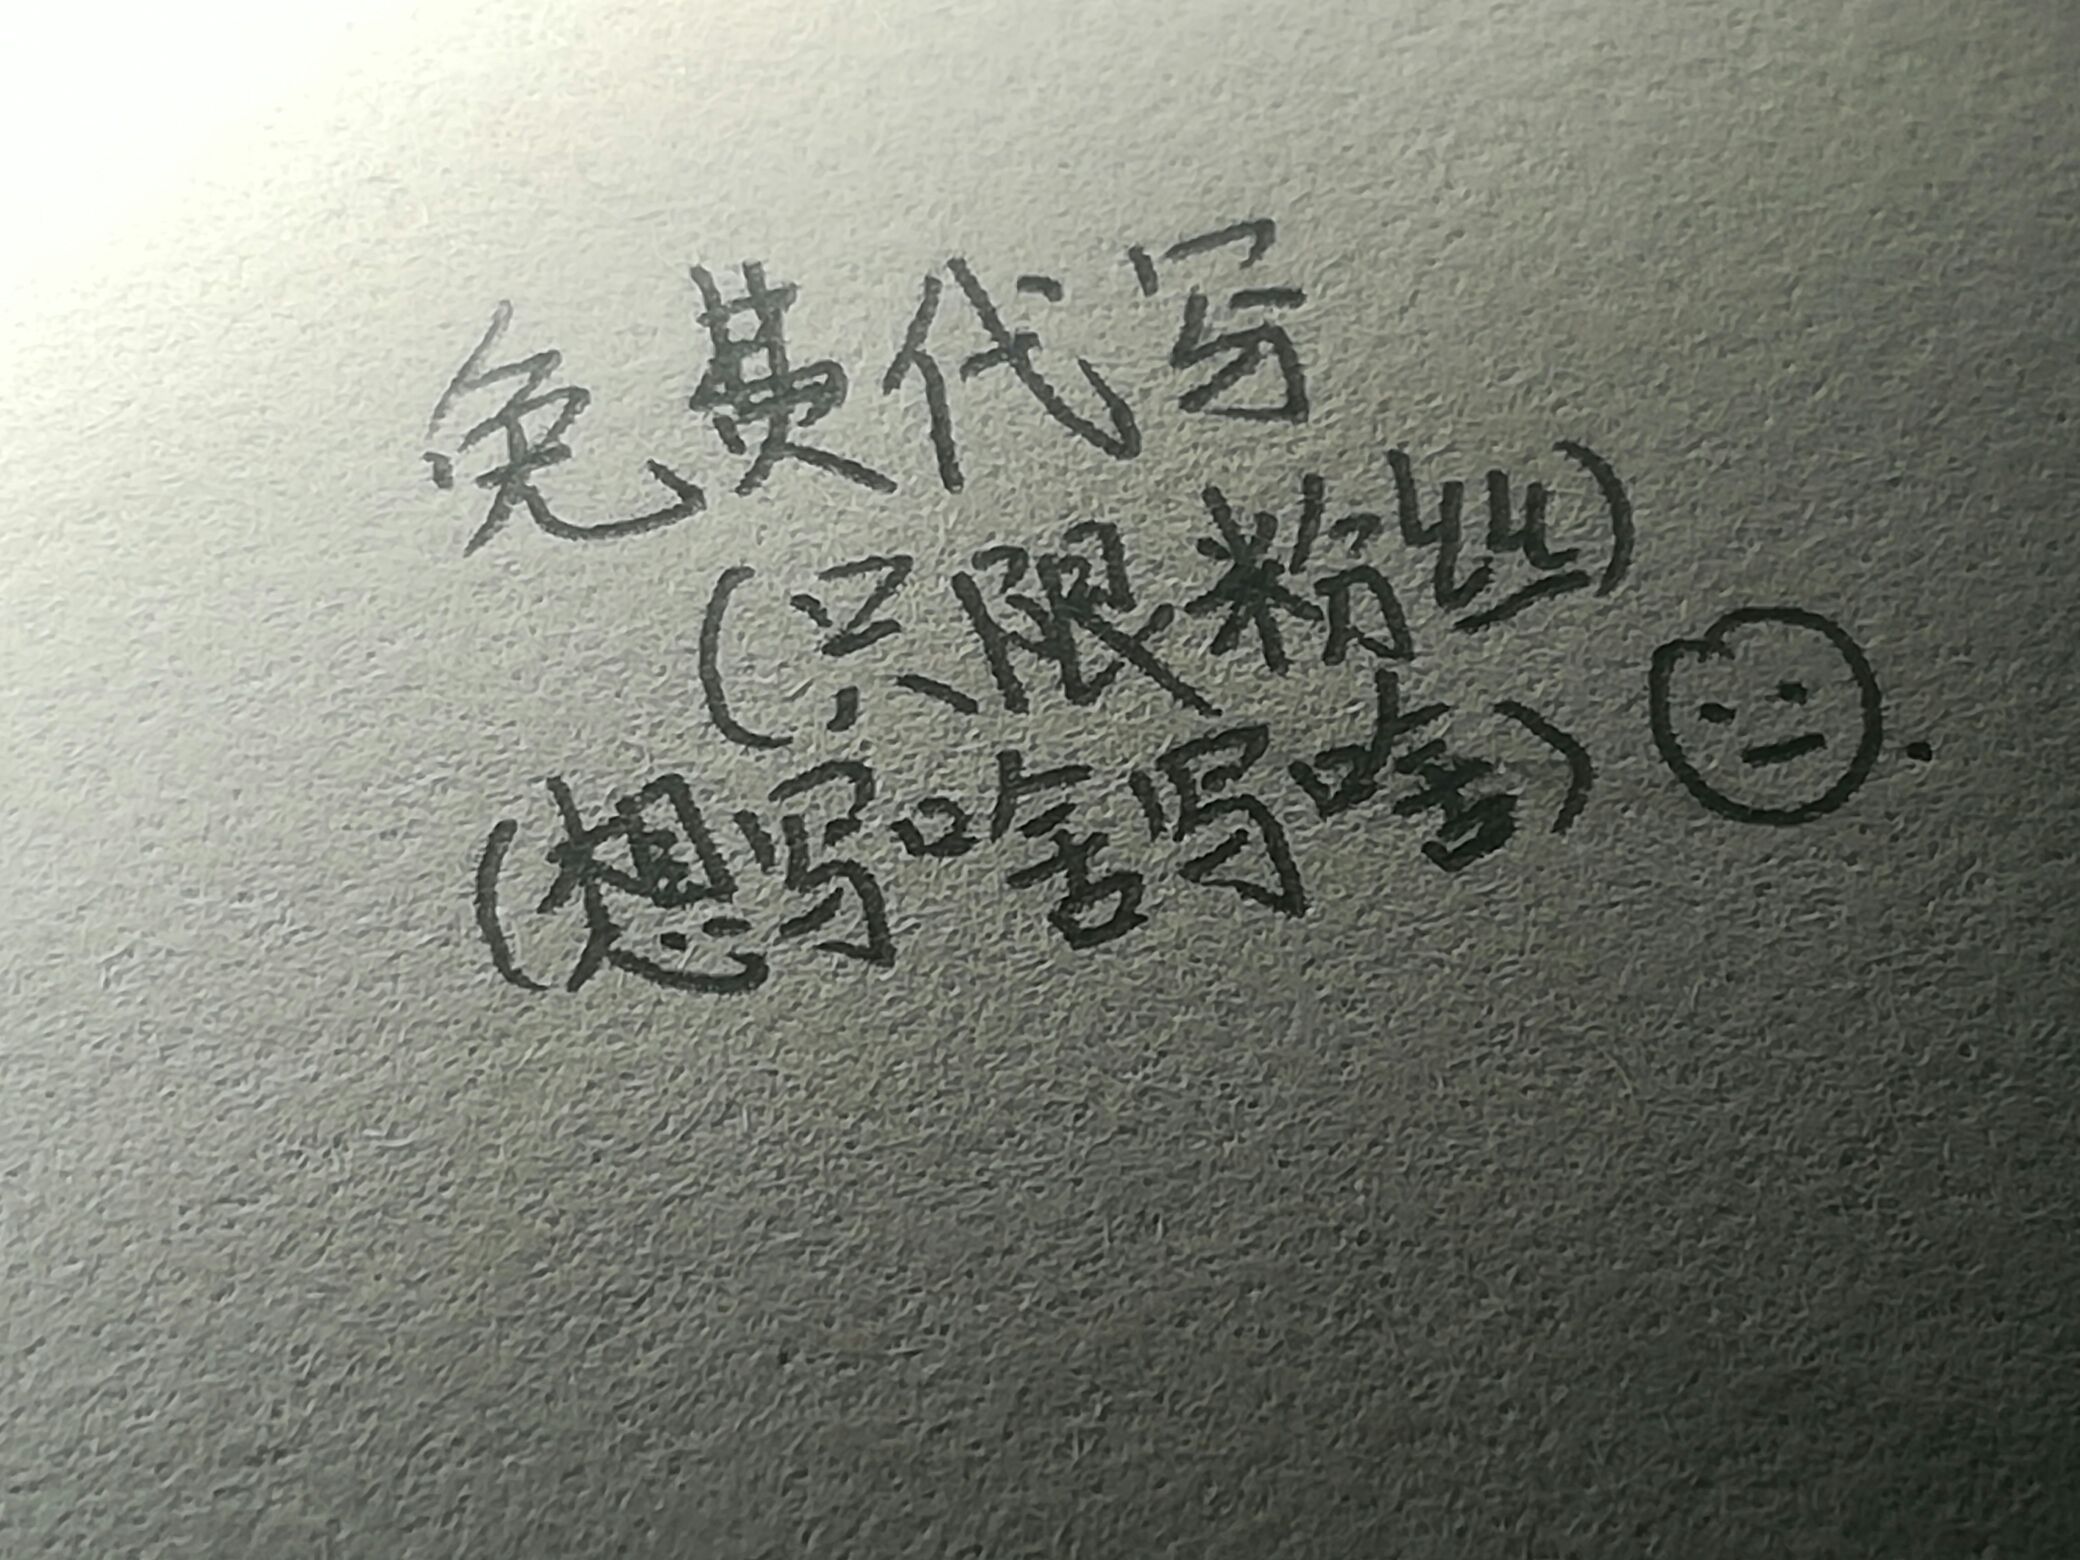 免费代写
(只限粉丝)
(想写啥写啥)